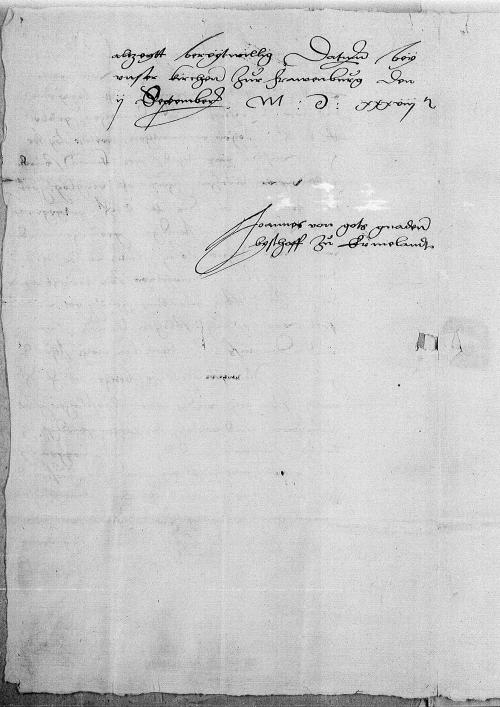 altzeytt bereytwillig Datum bey
unser kirchen zur frawenburg den
ij Septembers M : D : xxxviij
Joannes von gots gnaden
byschoff zu Ermelandt